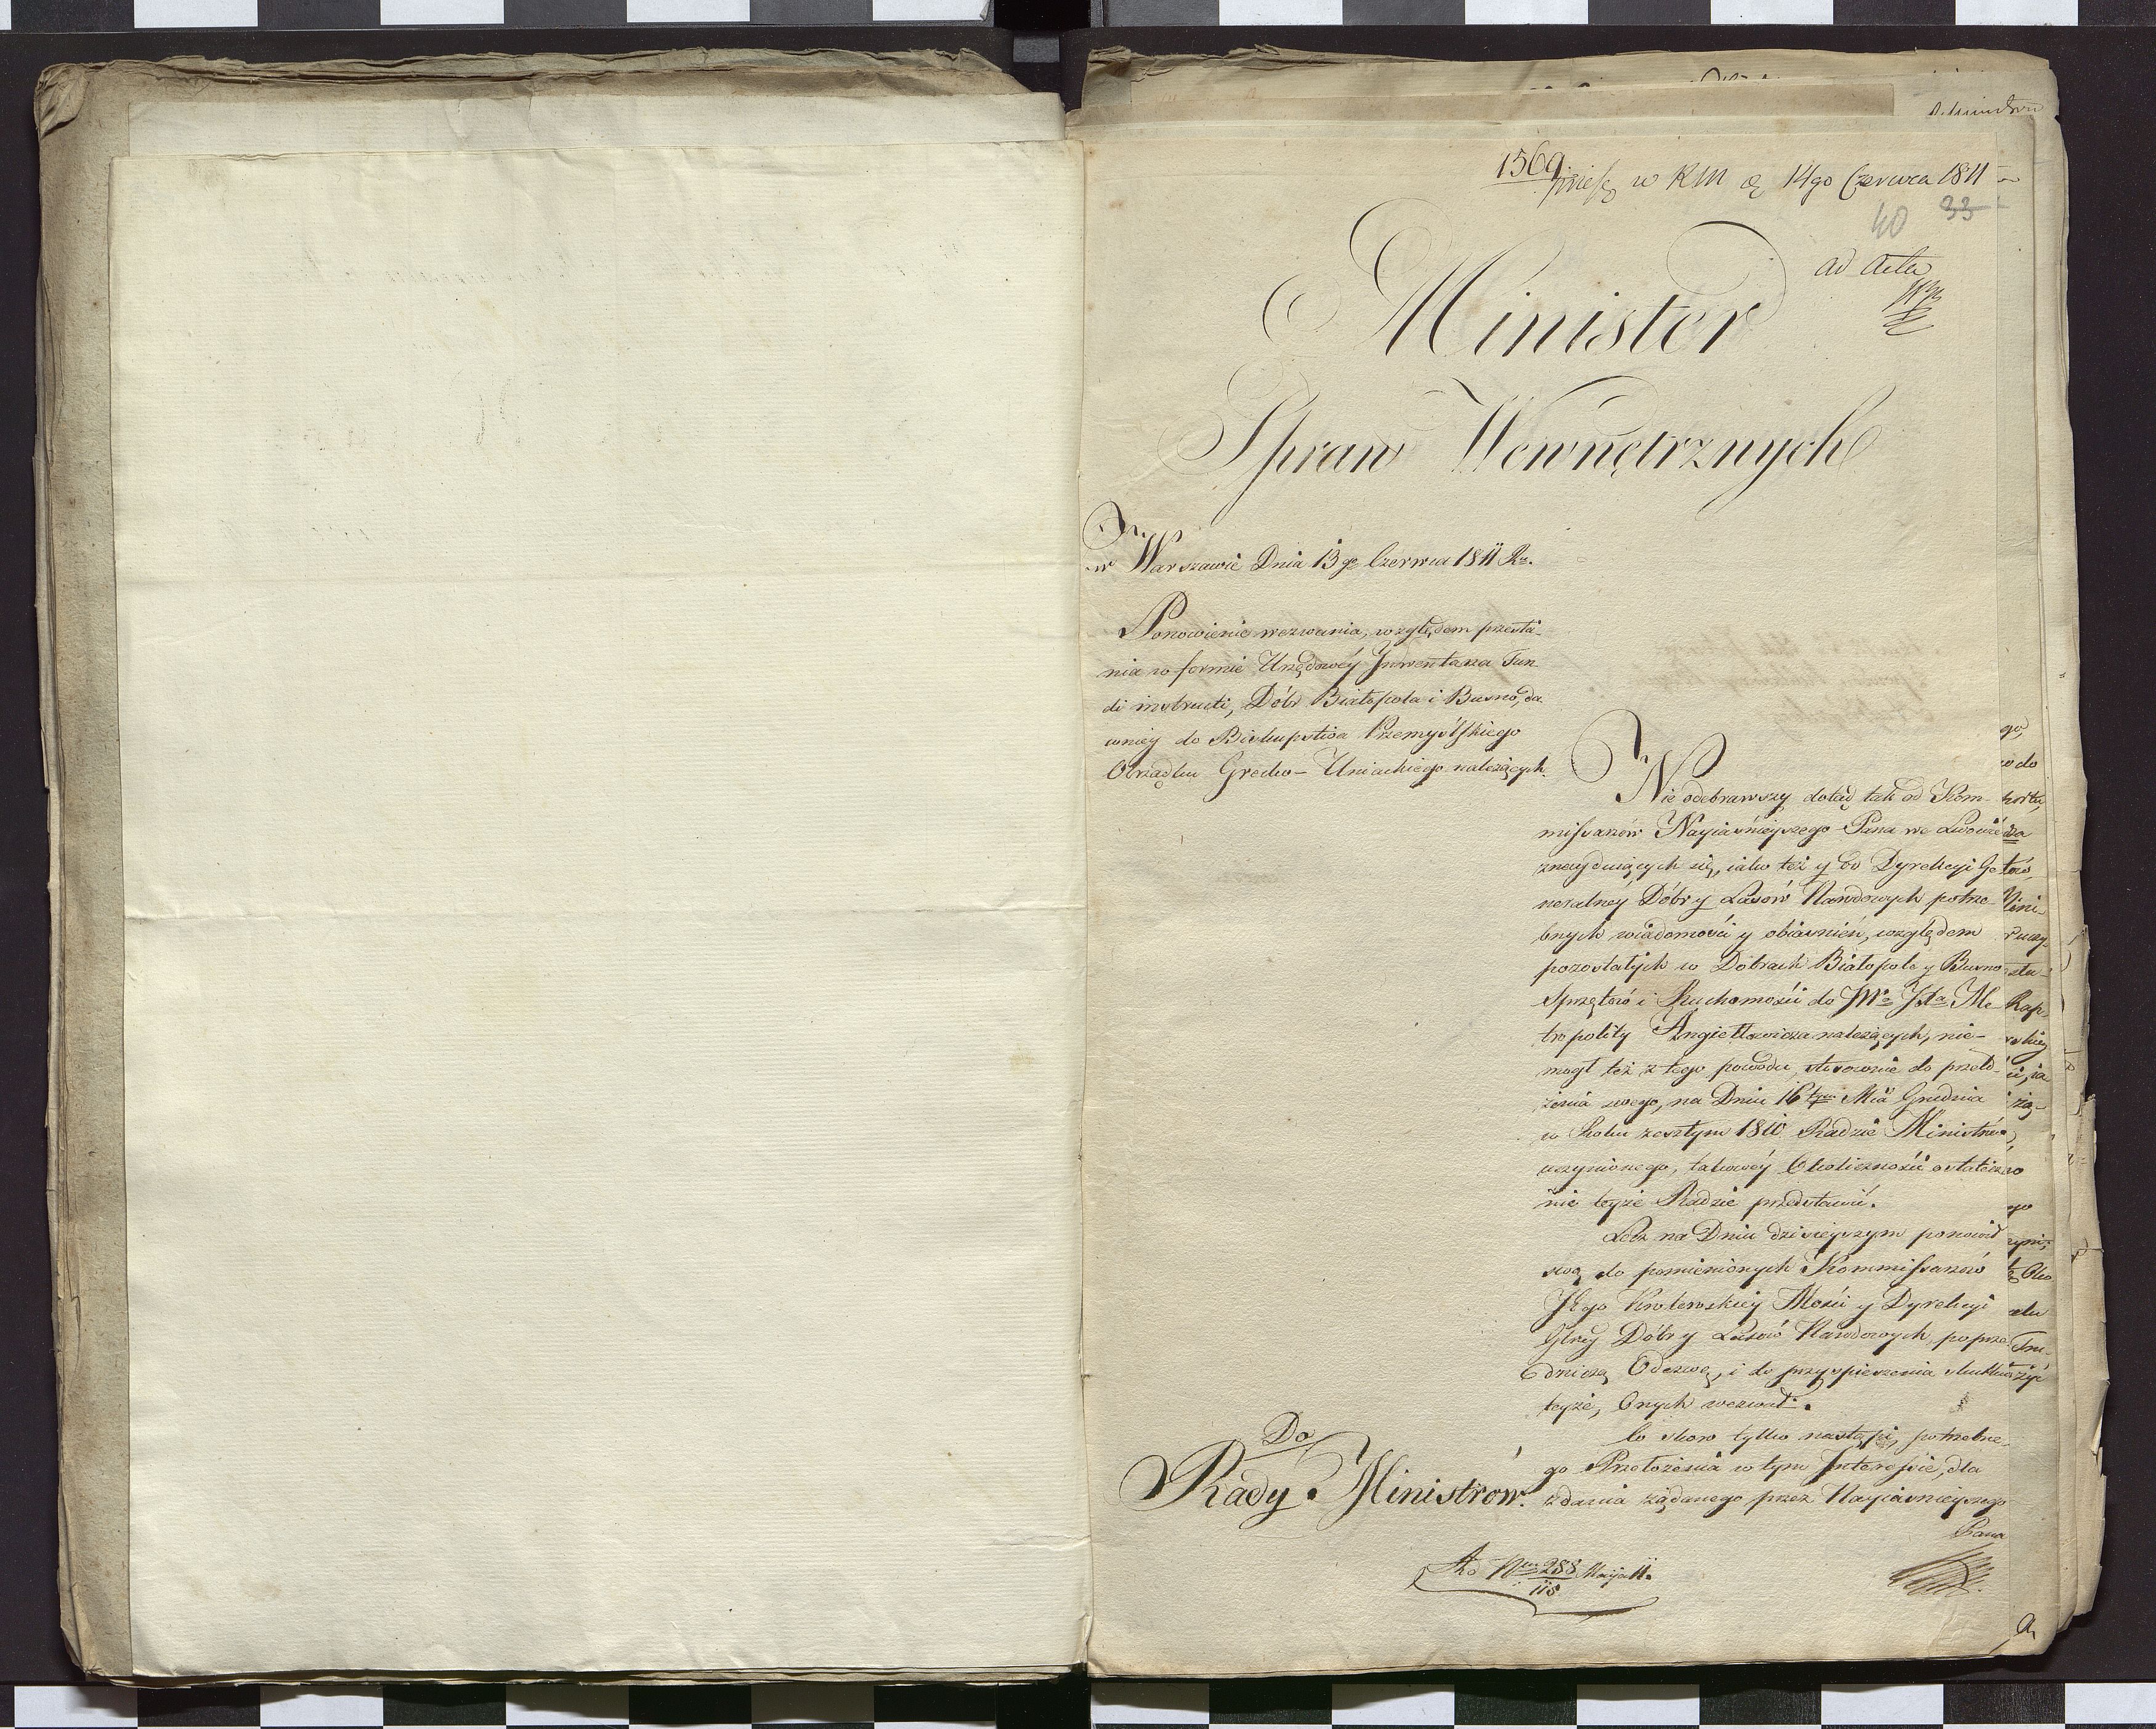 1569
w RM 14go Czerwca 1811
40 33
ad Acta
Minister
Spraw Wewnętrznych
w Warszawie Dnia 13go Czerwca 1811 Ru.
Ponowienie wezwania, względem przesła-
nia w formie Urzędowéy Inwentarza Fun-
di instructi, Dóbr Białopola i Busno, da-
wniéy do Biskupstwa Przemyślskiego
Obrządku Grecko-Uniackiego należących.
Nie odebrawszy dotąd tak od Kom-
missarzów Nayiaśnieyszego Pana we Lwowie
znayduiących się, iako też y od Dyrekcyi Ge-
neralnéy Dóbr y Lasów Narodowych potrze-
bnych wiadomości y obiaśnień, względem
pozostałych w Dobrach Białopole y Busno
Sprzętów i Ruchomości do Me-
tropolity Angiełłowicza należących, nie-
mogł też z tego powodu, stosownie do przeło-
żenia swego, na Dniu 16tym Mca Grudnia
w Roku zeszłym 1810 Radzie Ministrów,
uczynionego, takowéy Okoliczności ostatecz-
nie teyże Radzie przedstawić.
Lecz na Dniu dzisieyszym ponowił
swą do pomienionych Kommissarzów
JKgo Krolewskiéy Mości y Dyrekcyi
Glnéy Dóbr y Lasów Narodowych poprze-
dniczą Odezwę, i do przyspieszenia skutku
teyże, Onych wezwał.
Co skoro tylko nastąpi, potrzebne-
go Przełożenia w tym Interessie, dla
zdania żądanego przez Nayiaśnieyszego
Pana
Do
Rady Ministrów.
Ad Num 288 Maja 11.
118